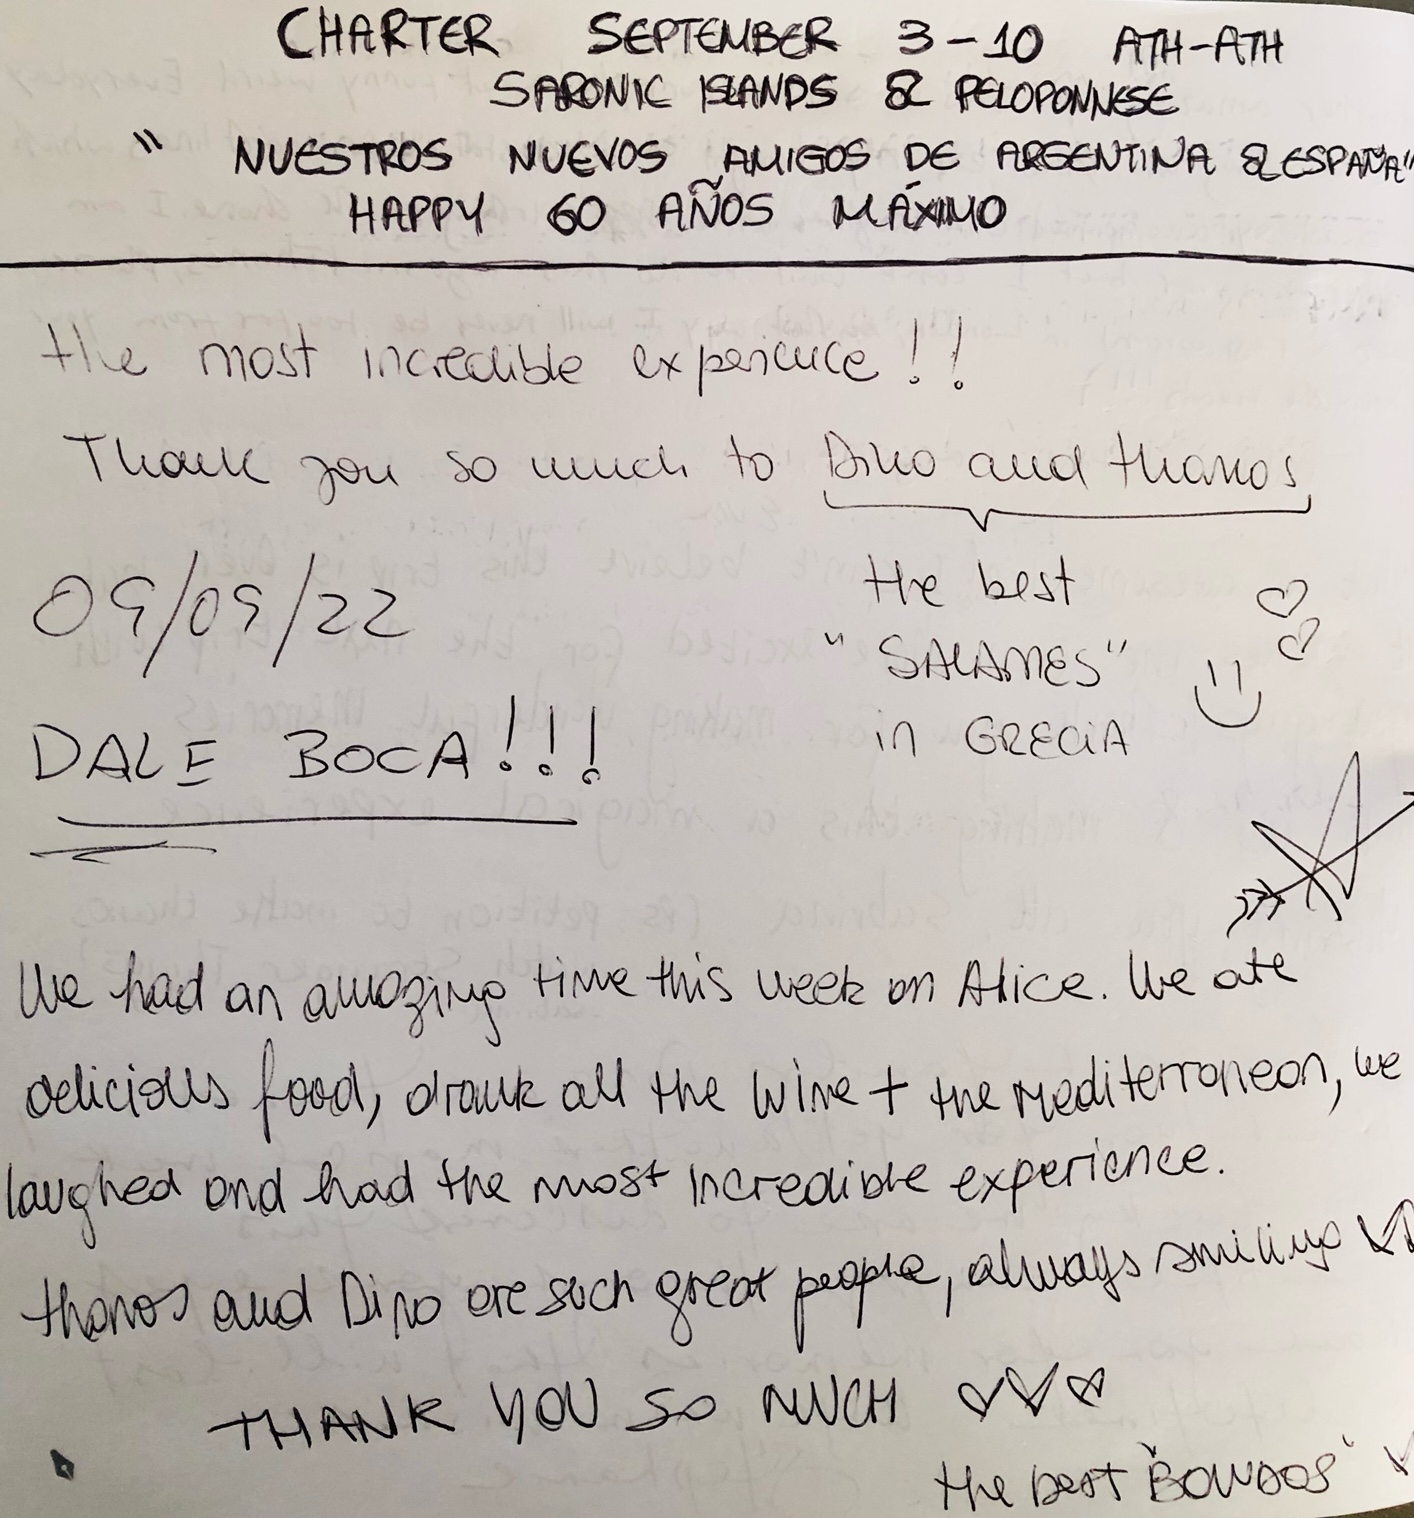 CHARTER SEPTEMBER 3-10 ATH-ATH
SARONIC ISLANDS & PELOPONNESE
" NUESTROS NUEVOS AMIGOS DE ARGENTINA & ESPAÑA"
HAPPY 60 AÑOS MÁXIMO
the most incredible experience!!
Thank you so much to Dino and thanos
the best
"SALAMES"
in GRECIA
09/09/22
DALE BOCA!!!
We had an amazing time this week on Alice. We ate
delicious food, drank all the wine + the Mediterranean, we
laughed and had the most incredible experience.
thanos and Dino are such great people, always smiling
THANK YOU SO MUCH
the best